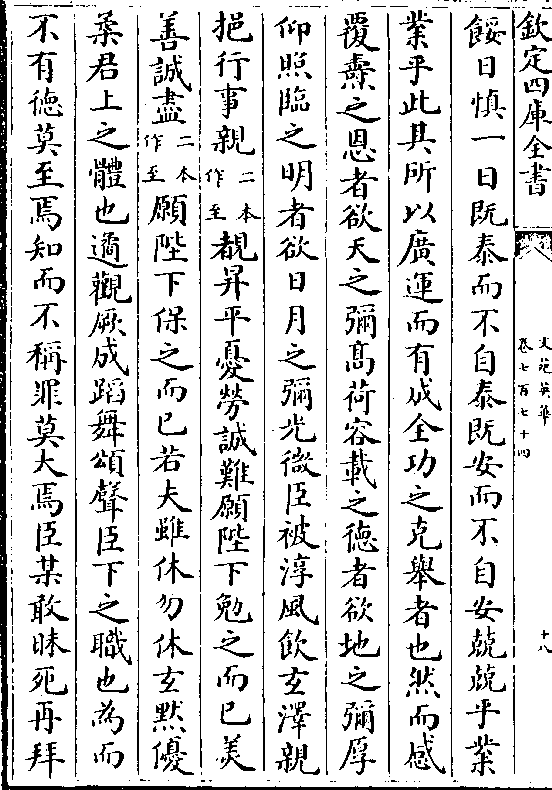 欽定四庫全書
文苑英華
卷七百七十四
十八
餒日慎一日既泰而不自泰既安而不自安兢兢乎業
業乎此其所以廣運而有成全功之克舉者也然而感
覆燾之恩者欲天之彌髙荷容載之德者欲地之彌厚
仰照臨之明者欲日月之彌光微臣被淳風飲玄澤親
挹行事親二本作至覩昇平憂勞誠難願陛下勉之而已美
善誠盡二本作至願陛下保之而已若夫雖休勿休玄黙優
柔君上之體也遹觀厥成蹈舞頌聲臣下之職也為而
不有德莫至焉知而不稱罪莫大焉臣某敢昧死再拜